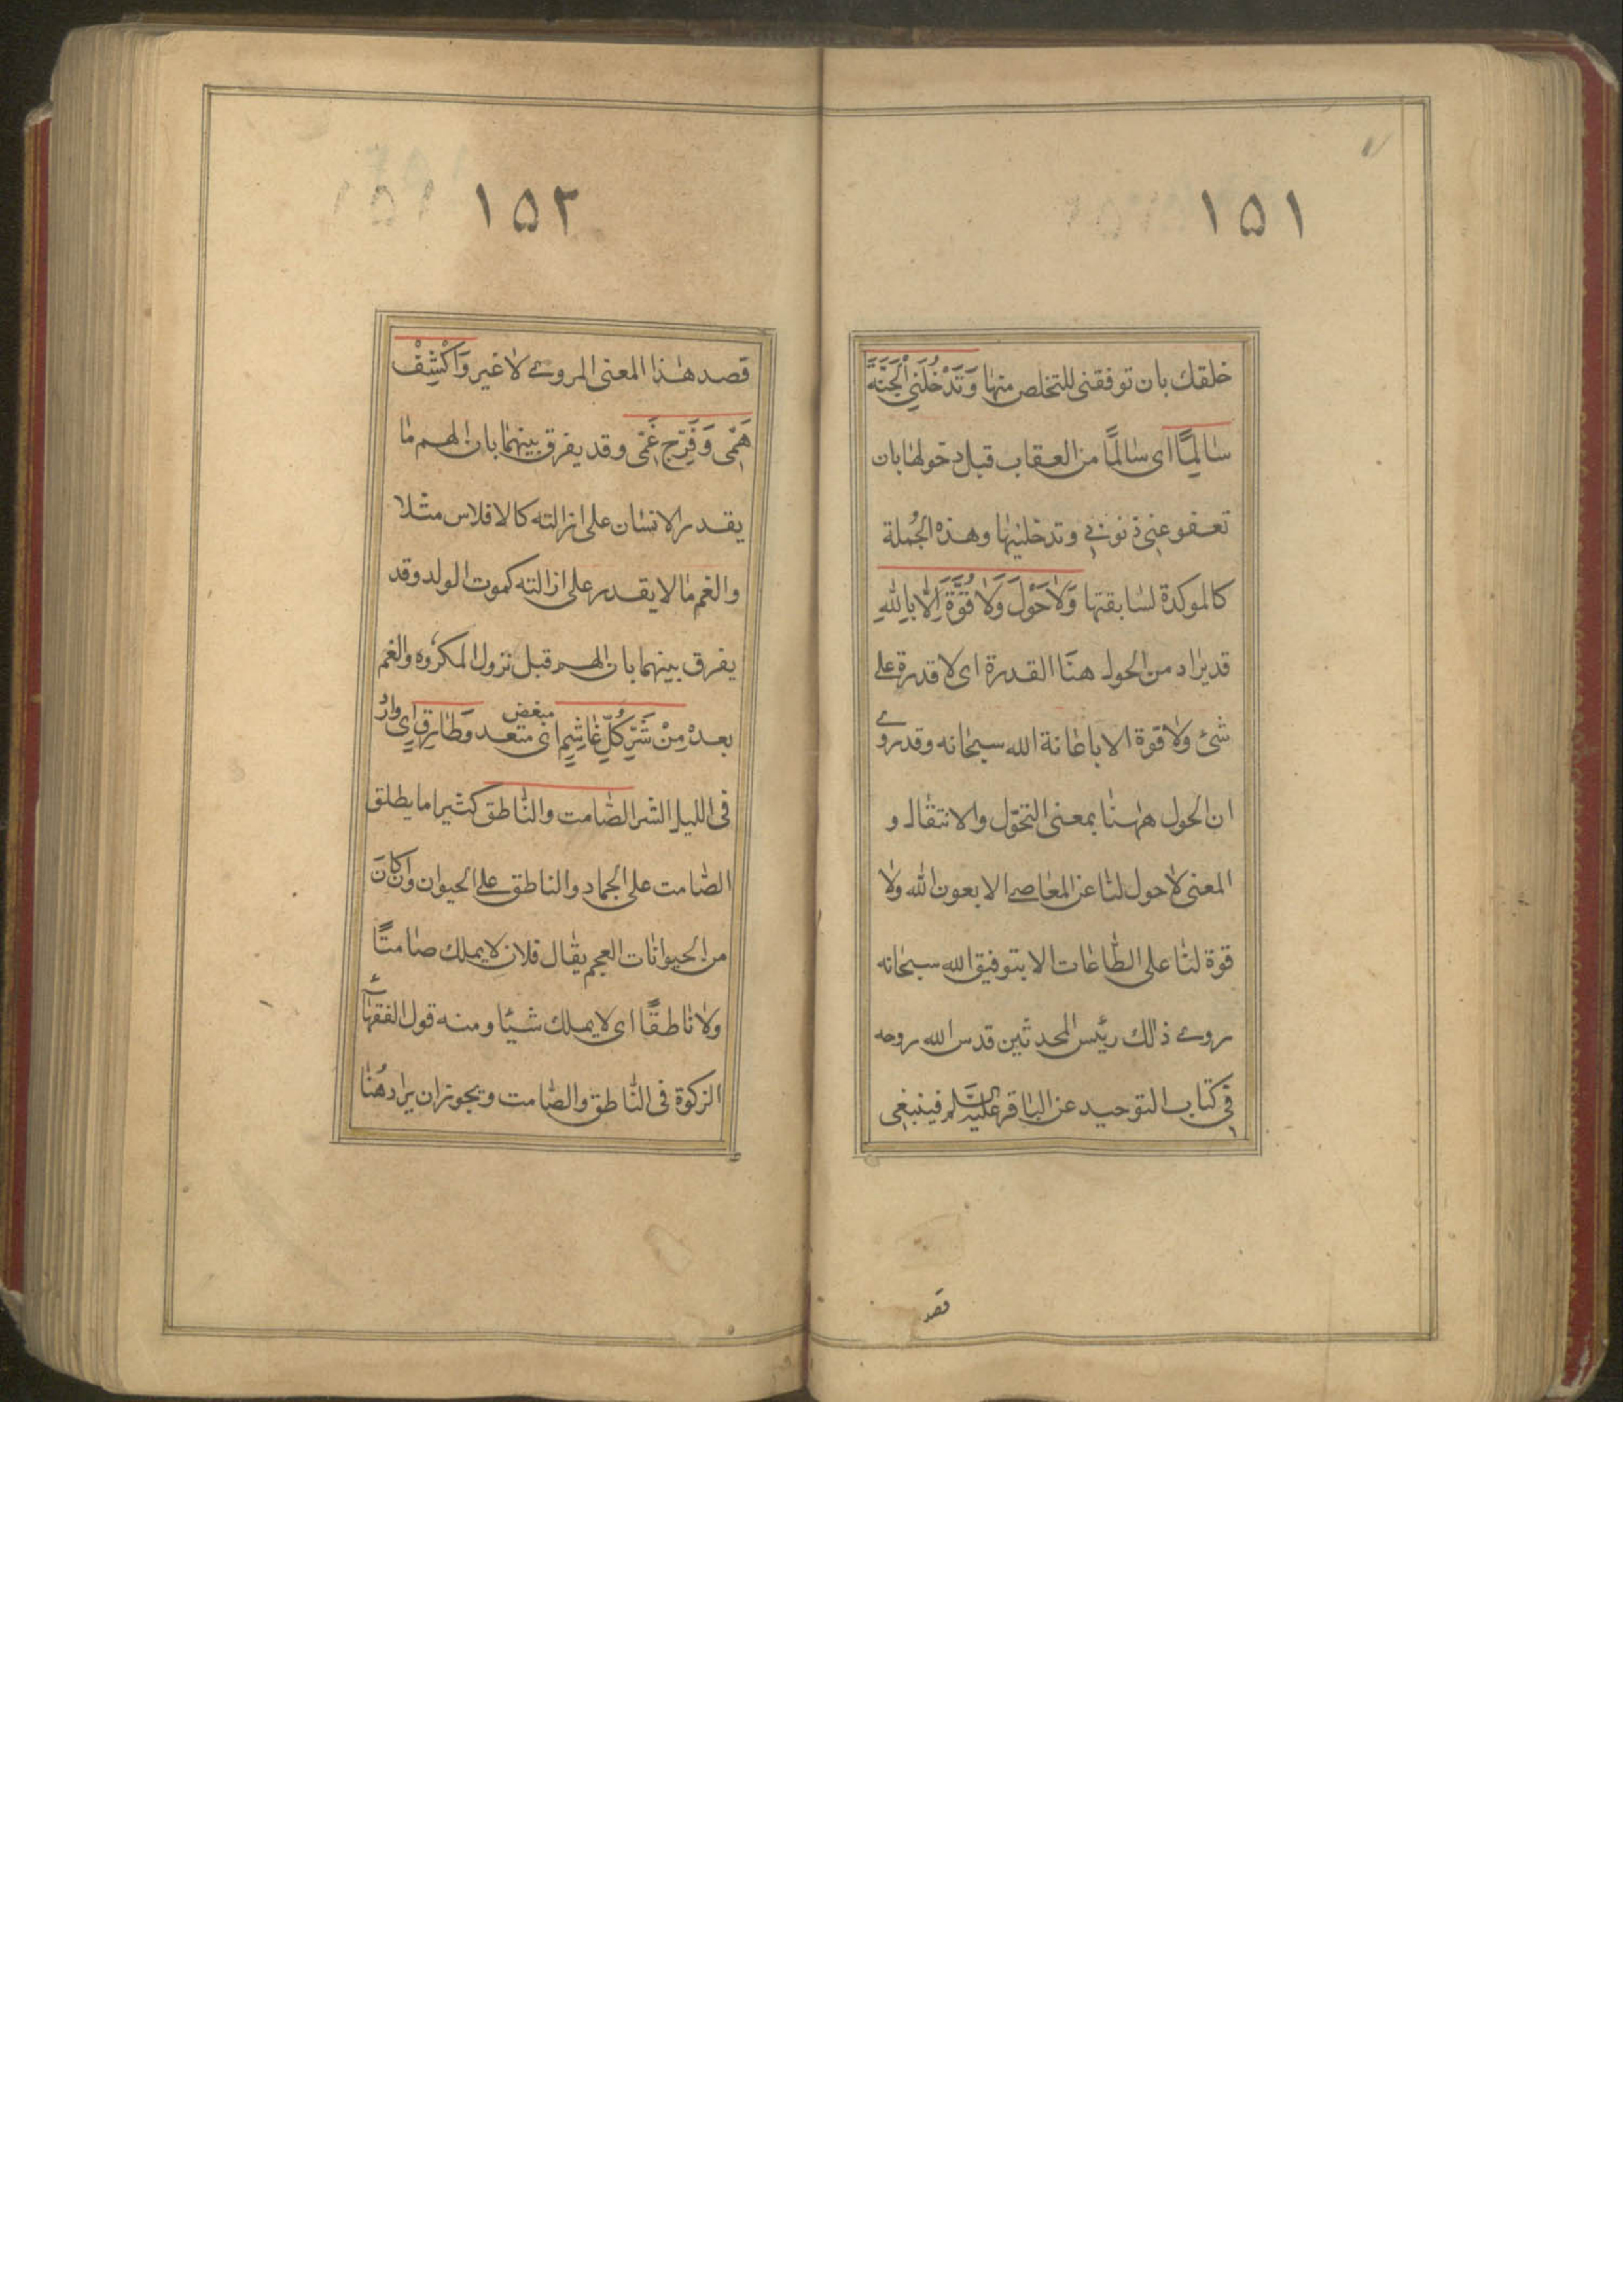 ١٥١
خلقك بان توفقنى للتخلص منها وَتُدْخِلَنِي الْجَنَّةَ
سٰالِمًا اى سٰالمًا من العقاب قبل دخولها بان
تعفو عنى ذنوبى وتدخلنيها وهذه الجُملة
كالموكدة لسٰابقتها وَلٰاحَوْلَ وَلٰا قُوَّةَ اِلّٰا بِاللّٰهِ
قد يراد من الحول هنَا القدرة اى لا قدرة على
شئ ولٰا قوة الا باعٰانة الله سبحٰانه وقد روى
ان الحول هٰهنٰا بمعنى التحوّل والانتقٰال و
المعنى لٰاحول لنٰا عن المعٰاصى الا بعون الله ولٰا
قوة لنٰا على الطّٰاعٰات الا بتوفيق الله سبحٰانه
روى ذٰلك رئيس المحدثين قدس الله روحه
فى كتاب التوحيد عن البٰاقر عليه السلم فينبغى
قصد
١٥٢
قصد هٰذا المعنى المروى لاغير وَاكْشِفْ
هَمِّى وَفَرِّج غَمِّى وقد يفرق بينهمٰا بان الهم مٰا
يقدر الانسٰان على ازالته كالافلاس مثلا
والغم مٰا لا يقدر على ازالته كموت الولد وقد
يفرق بينهما بان الهم قبل نزول المكروه والغم
بعده مِنْ شَرِّ كُلِّ غٰاشِمٍ اى متعد مبغض وَطٰارِقٍ اى وارد
فى الليل الشر الصّٰامت والنّٰاطق كثيرا ما يطلق
الصّٰامت على الجماد والناطق على الحيوان وان كان
من الحيوانٰات العجم يقٰال فلان لا يملك صٰامتًا
ولٰا نٰاطقًا اى لا يملك شيئًا ومنه قول الفقهٰآء
الزكوة فى النّٰاطق والصّٰامت ويجوز ان يرٰاد هُنٰا